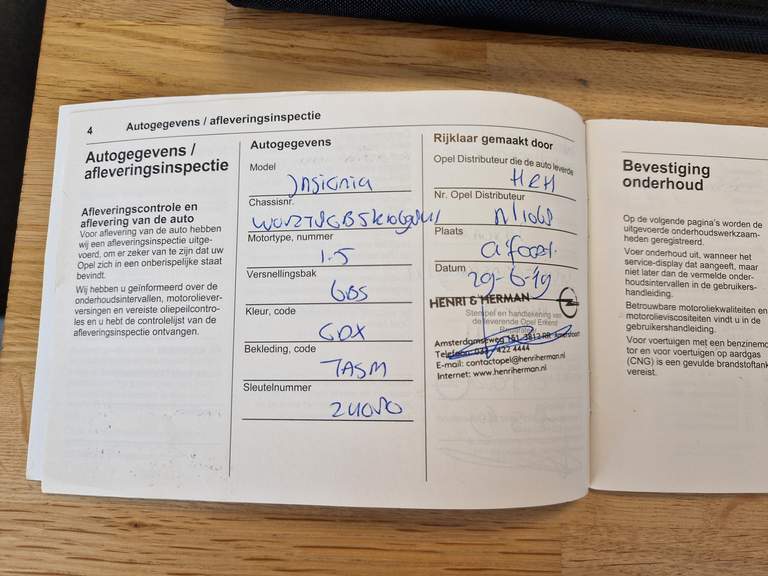 4 Autogegevens / afleveringsinspectie
Autogegevens /
afleveringsinspectie
Afleveringscontrole en
aflevering van de auto
Voor aflevering van de auto hebben
wij een afleveringsinspectie uitge-
voerd, om er zeker van te zijn dat uw
Opel zich in een onberispelijke staat
bevindt.
Wij hebben u geïnformeerd over de
onderhoudsintervallen, motoroliever-
versingen en vereiste oliepeilcontro-
les en u hebt de controlelijst van de
afleveringsinspectie ontvangen.
Autogegevens
Model
Insignia
Chassisnr.
Motortype, nummer
1.5
Versnellingsbak
Kleur, code
Bekleding, code
TASM
Sleutelnummer
Rijklaar gemaakt door
Opel Distributeur die de auto leverde
H&H
Nr. Opel Distributeur
Plaats
Datum
29-6-19
HENRI & HERMAN
Stempel en handtekening van
de leverende Opel Erkend
Amsterdamseweg
Telefoon: 422 4444
E-mail: contactopel@henriherman.nl
Internet: www.henriherman.nl
Bevestiging
onderhoud
Op de volgende pagina's worden de
uitgevoerde onderhoudswerkzaam-
heden geregistreerd.
Voer onderhoud uit, wanneer het
service-display dat aangeeft, maar
niet later dan de vermelde onder-
houdsintervallen in de gebruikers-
handleiding.
Betrouwbare motoroliekwaliteiten en
motorolieviscositeiten vindt u in de
gebruikershandleiding.
Voor voertuigen met een benzinemo
tor en voor voertuigen op aardgas
(CNG) is een gevulde brandstoftank
vereist.